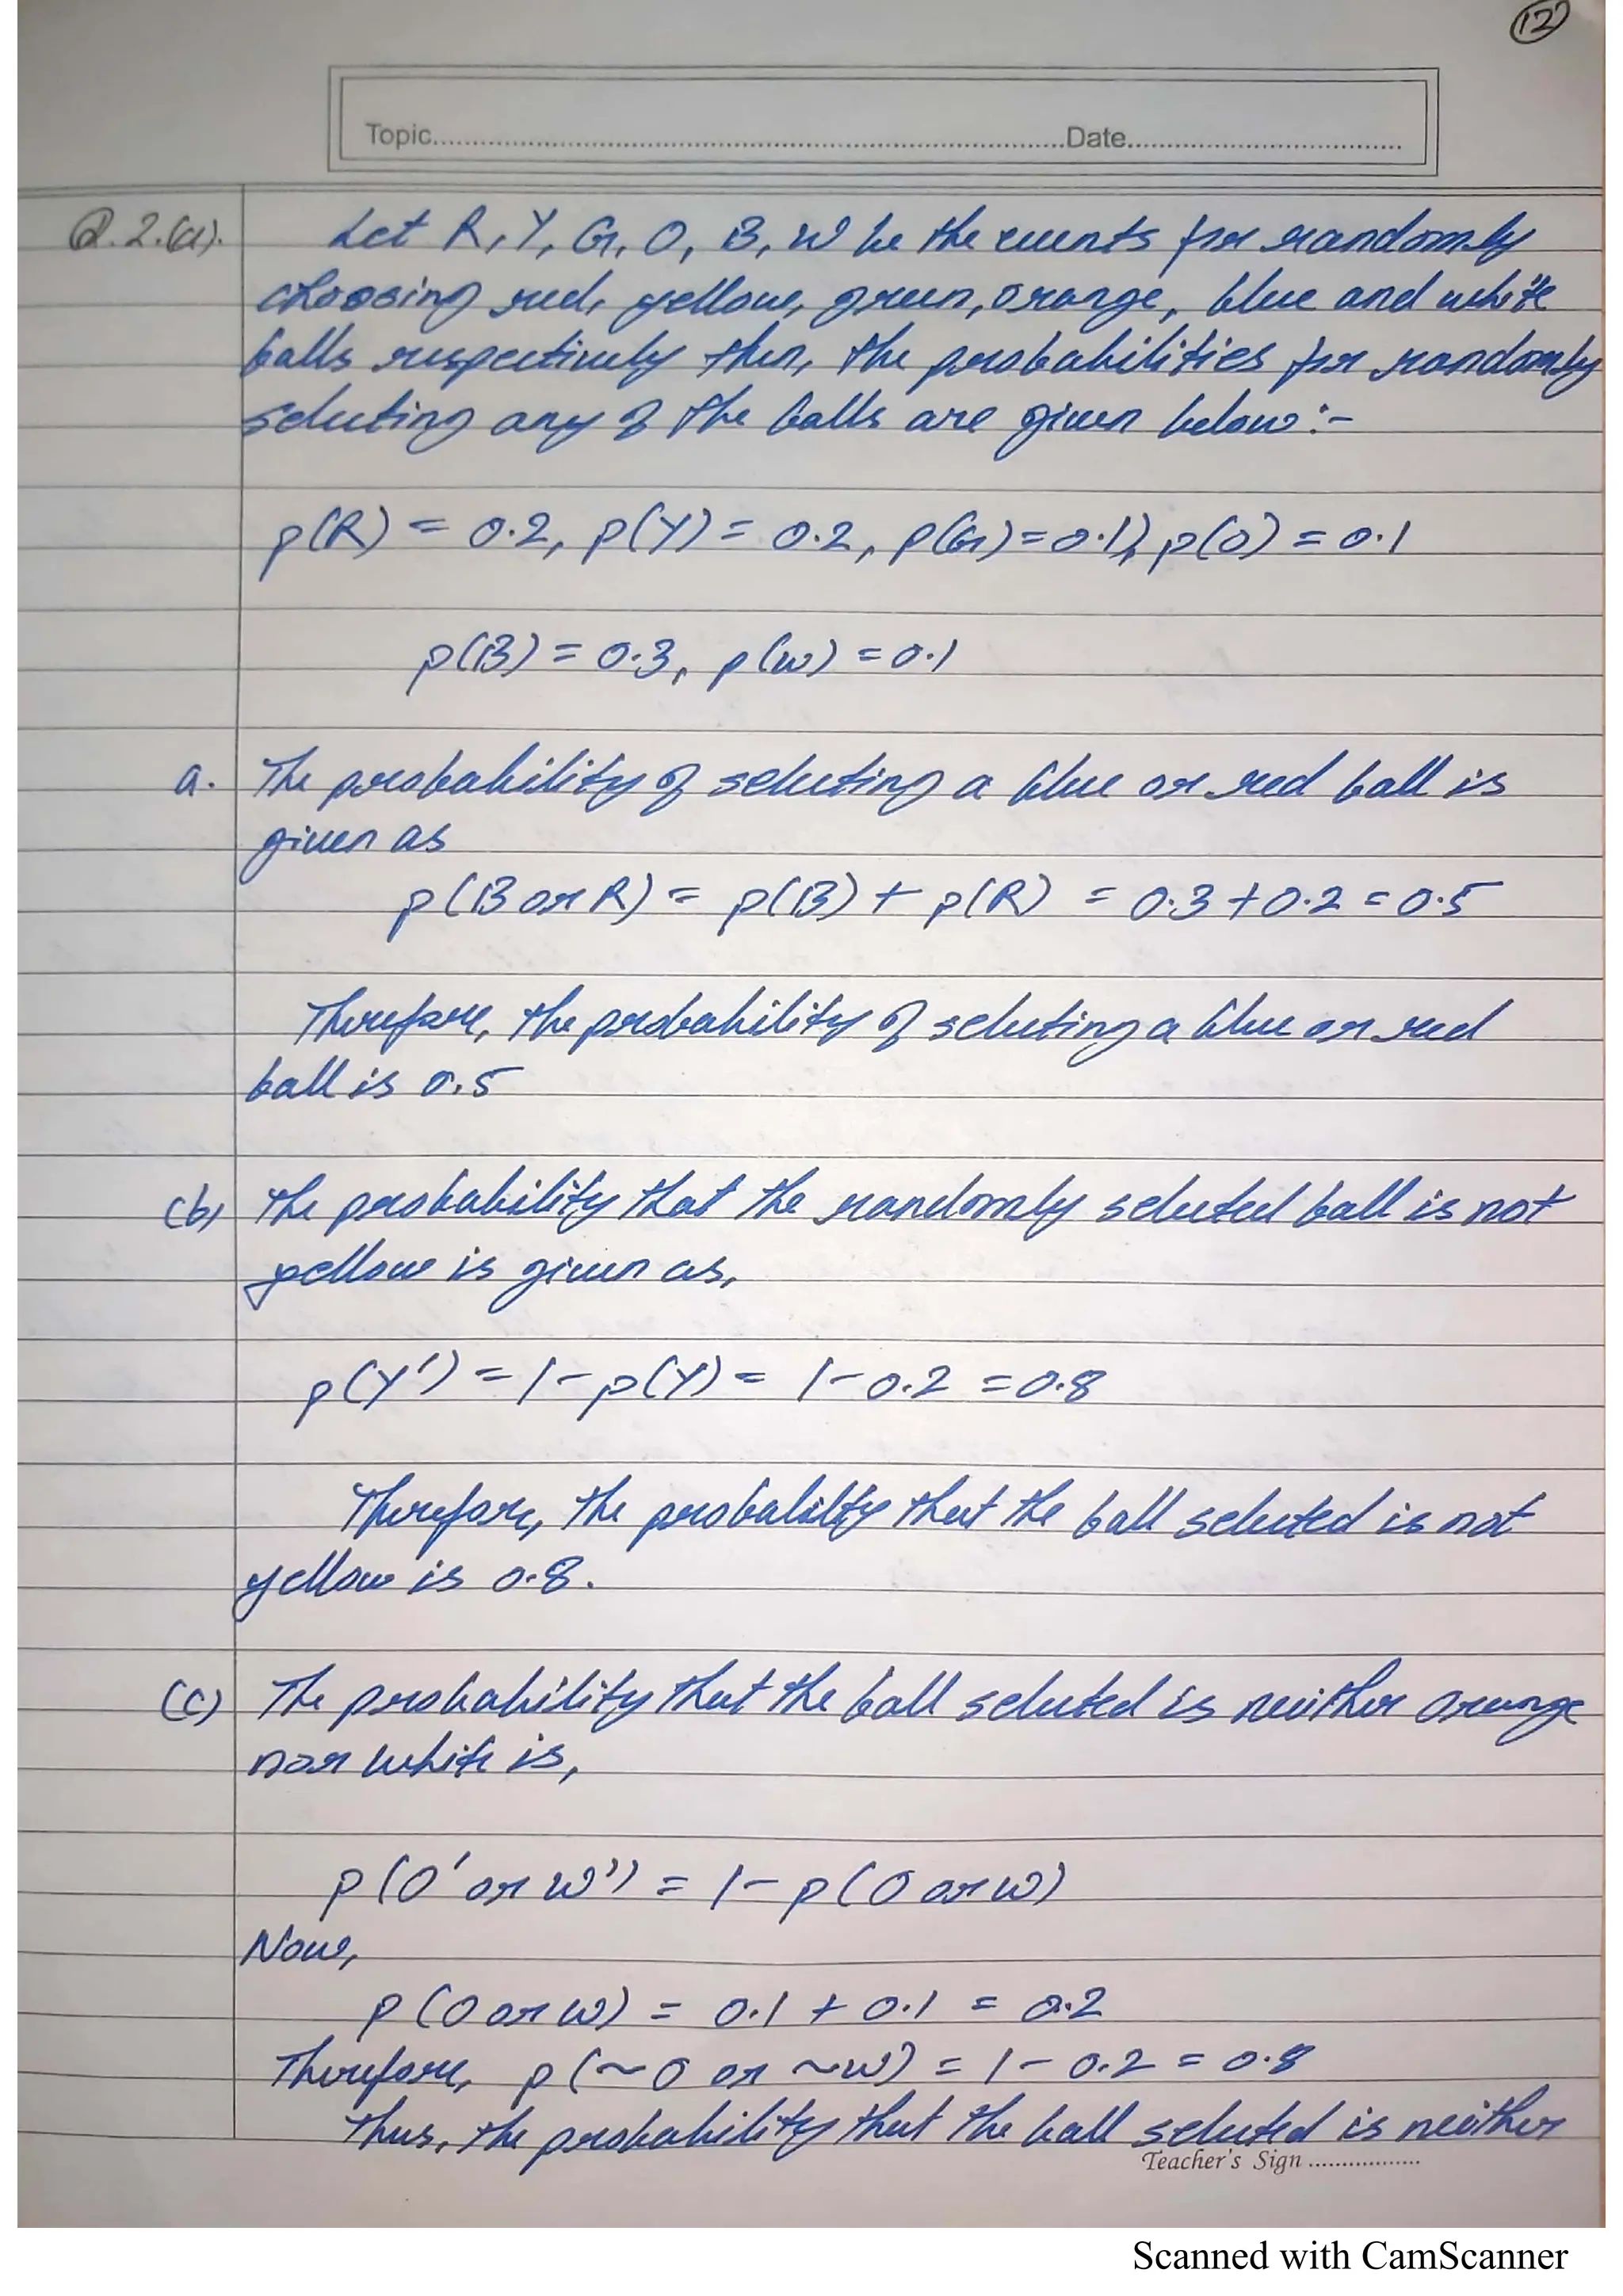 12
Topic Date
Q.2.(a). Let R, Y, G, O, B, W be the events for randomly
choosing red, yellow, green, orange, blue and white
balls respectively then, the probabilities for randomly
selecting any of the balls are given below:-
p(R) = 0.2, p(Y) = 0.2, p(G) = 0.1, p(O) = 0.1
p(B) = 0.3, p(W) = 0.1
a. The probability of selecting a blue or red ball is
given as
p(B or R) = p(B) + p(R) = 0.3 + 0.2 = 0.5
Therefore, the probability of selecting a blue or red
ball is 0.5
(b) The probability that the randomly selected ball is not
yellow is given as,
p(Y') = 1 - p(Y) = 1 - 0.2 = 0.8
Therefore, the probability that the ball selected is not
yellow is 0.8.
(c) The probability that the ball selected is neither orange
nor white is,
p(O' or W') = 1 - p(O or W)
Now,
p(O or W) = 0.1 + 0.1 = 0.2
Therefore, p(~O or ~W) = 1 - 0.2 = 0.8
Thus, the probability that the ball selected is neither
Teacher's Sign
Scanned with CamScanner